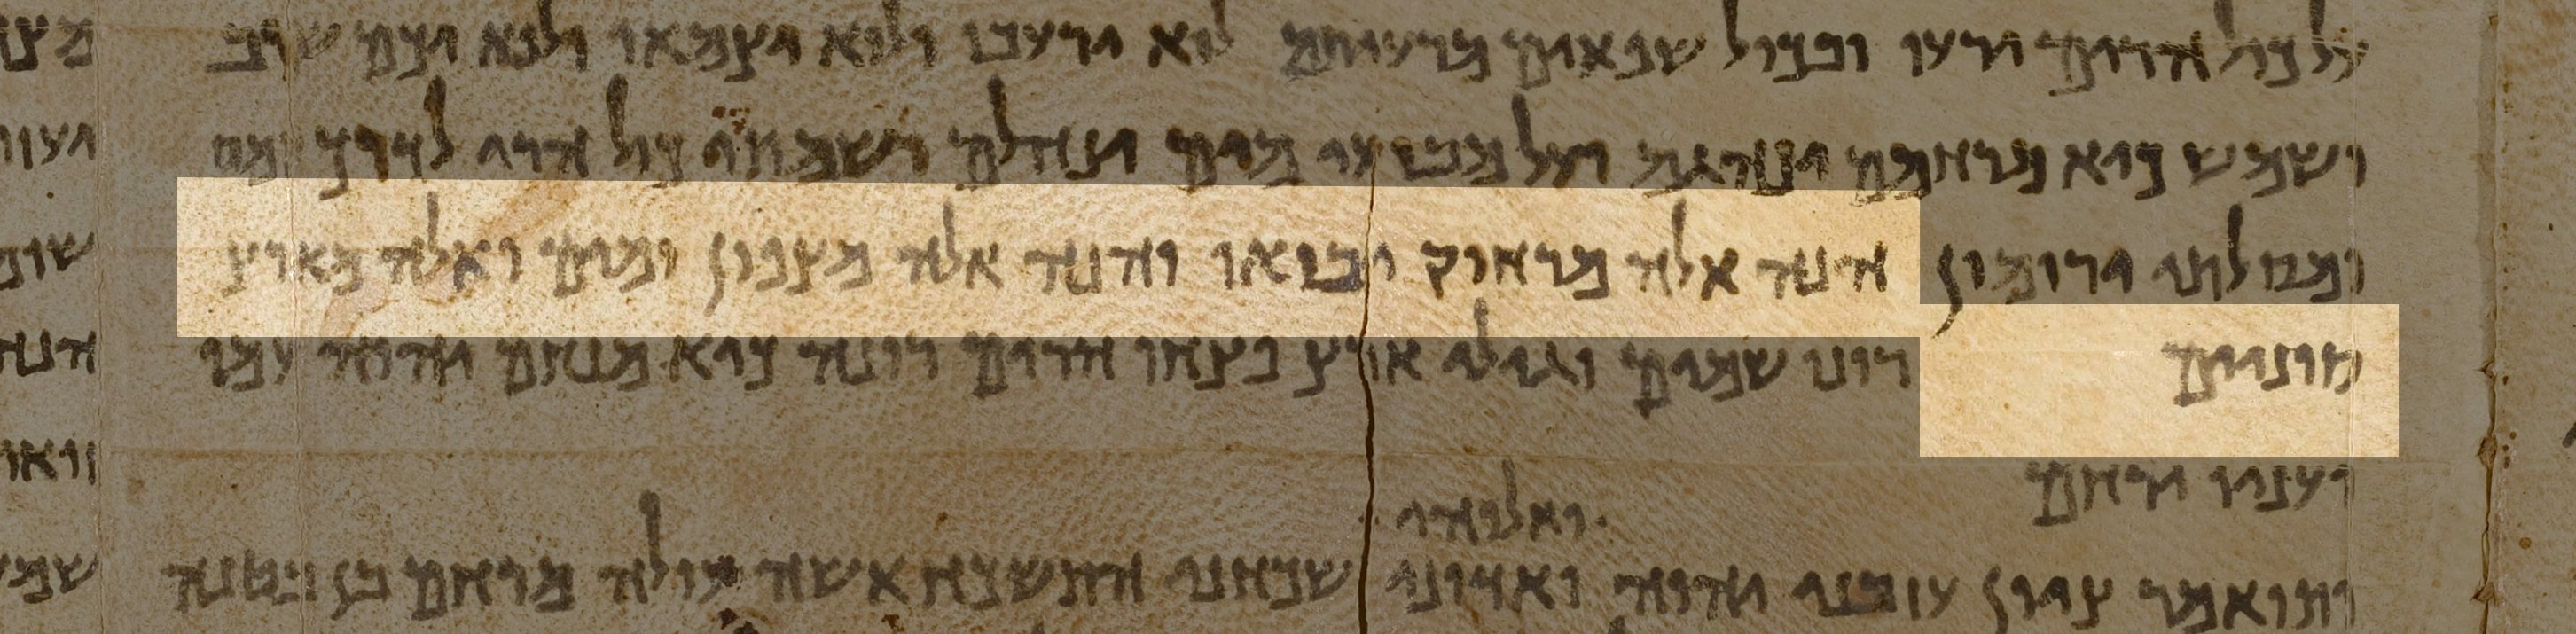 על כול הרים ירעו ובכול שפאים מרעיתם לוא ירעבו ולוא יצמאו ולוא יכם שרב
ושמש כיא מרחמם ינהגם ועל מבועי מים ינהלם ושמתי כול הרי לדרך
ומסלתי ירומון הנה אלה מרחוק יבואו והנה אלה מצפון ומים ואלה מארץ
סונים רונו שמים וגילי ארץ פצחו הרים רונה כיא מנחם יהוה עמו
ועניו ירחם
ואלוהי
ותואמר ציון עזבני יהוה ואדוני שכחני התשכח אשה עולה מרחם בן בטנה